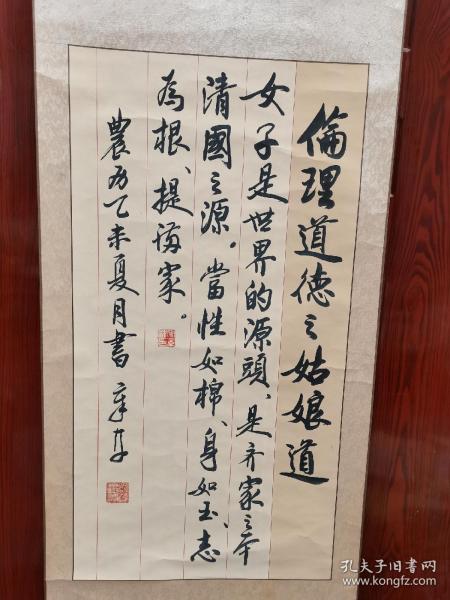 倫理道德之姑娘道
女子是世界的源頭、是齐家之本
清國之源。當性如棉、身如玉、志
為根、提满家。
農历乙未夏月書
孔夫子旧书网
www.kongfz.com